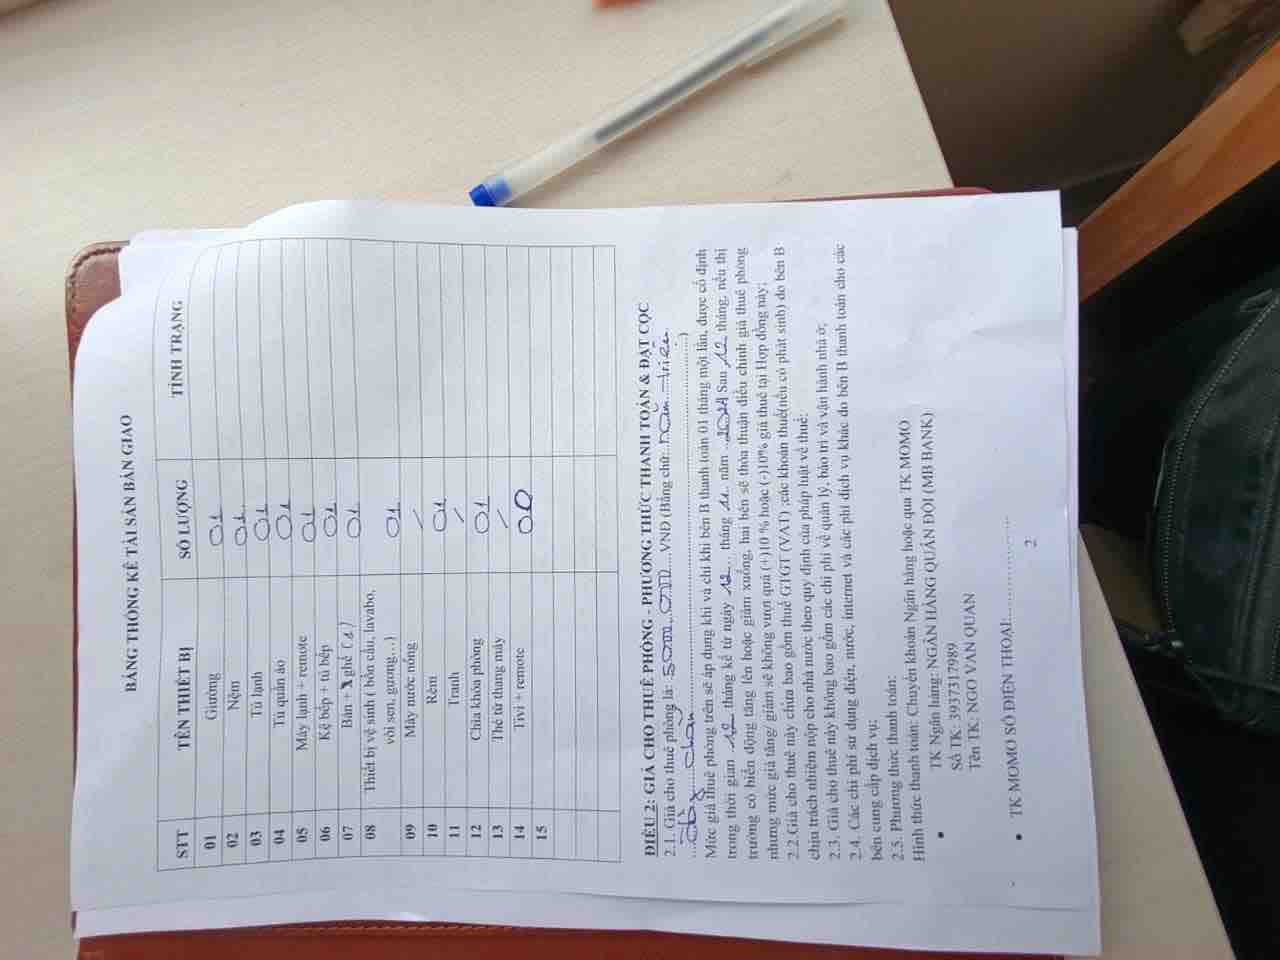 BẢNG THỐNG KÊ TÀI SẢN BÀN GIAO
STT TÊN THIẾT BỊ SỐ LƯỢNG TÌNH TRẠNG
01 Giường 01
02 Nệm 01
03 Tủ lạnh 01
04 Tủ quần áo 01
05 Máy lạnh + remote 01
06 Kệ bếp + tủ bếp 01
07 Bàn + ghế (1) 01
08 Thiết bị vệ sinh ( bồn cầu, lavabo, vòi sen, gương…) 01
09 Máy nước nóng /
10 Rèm 01
11 Tranh /
12 Chìa khóa phòng 01
13 Thẻ từ thang máy /
14 Tivi + remote 00
15
ĐIỀU 2: GIÁ CHO THUÊ PHÒNG - PHƯƠNG THỨC THANH TOÁN & ĐẶT CỌC
2.1. Giá cho thuê phòng là: 5.000.000 VNĐ (Bằng chữ: năm triệu
đồng chẵn)
Mức giá thuê phòng trên sẽ áp dụng khi và chỉ khi bên B thanh toán 01 tháng một lần, được cố định
trong thời gian 12 tháng kể từ ngày 12 tháng 11 năm 2021 Sau 12 tháng, nếu thị
trường có biến động tăng lên hoặc giảm xuống, hai bên sẽ thỏa thuận điều chỉnh giá thuê phòng
nhưng mức giá tăng/ giảm sẽ không vượt quá (+)10 % hoặc (-)10% giá thuê tại Hợp đồng này;
2.2 Giá cho thuê này chưa bao gồm thuế GTGT (VAT) ;các khoản thuế(nếu có phát sinh) do bên B
chịu trách nhiệm nộp cho nhà nước theo quy định của pháp luật về thuế;
2.3. Giá cho thuê này không bao gồm các chi phí về quản lý, bảo trì và vận hành nhà ở;
2.4. Các chi phí sử dụng điện, nước, internet và các phí dịch vụ khác do bên B thanh toán cho các
bên cung cấp dịch vụ;
2.5. Phương thức thanh toán:
Hình thức thanh toán: Chuyển khoản Ngân hàng hoặc qua TK MOMO
• TK Ngân hàng: NGÂN HÀNG QUÂN ĐỘI (MB BANK)
Số TK: 3937317989
Tên TK: NGO VAN QUAN
• TK MOMO SỐ ĐIỆN THOẠI:
2